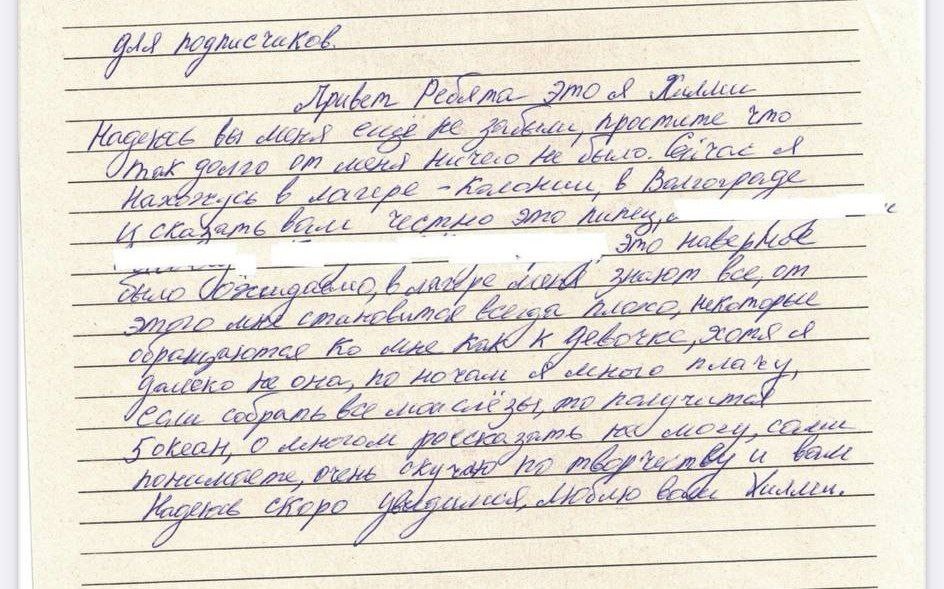 для подписчиков.
Привет Ребята это я Хилми
Надеюсь вы меня ещё не забыли, простите что
так долго от меня ничего не было. Сейчас я
нахожусь в лагере - Калонии, в Волгограде
И сказать вам честно это пипец,
это наверное
было ожидаемо, в лагере меня знают все, от
этого мне становится всегда плохо, некоторые
обращаются ко мне как к девочке, хотя я
далеко не она, по ночам я много плачу,
если собрать все мои слёзы, то получится
5 океан, о многом рассказать не могу, сами
понимаете, очень скучаю по творчеству и вам
Надеюсь скоро увидимся, люблю вас Хилми.